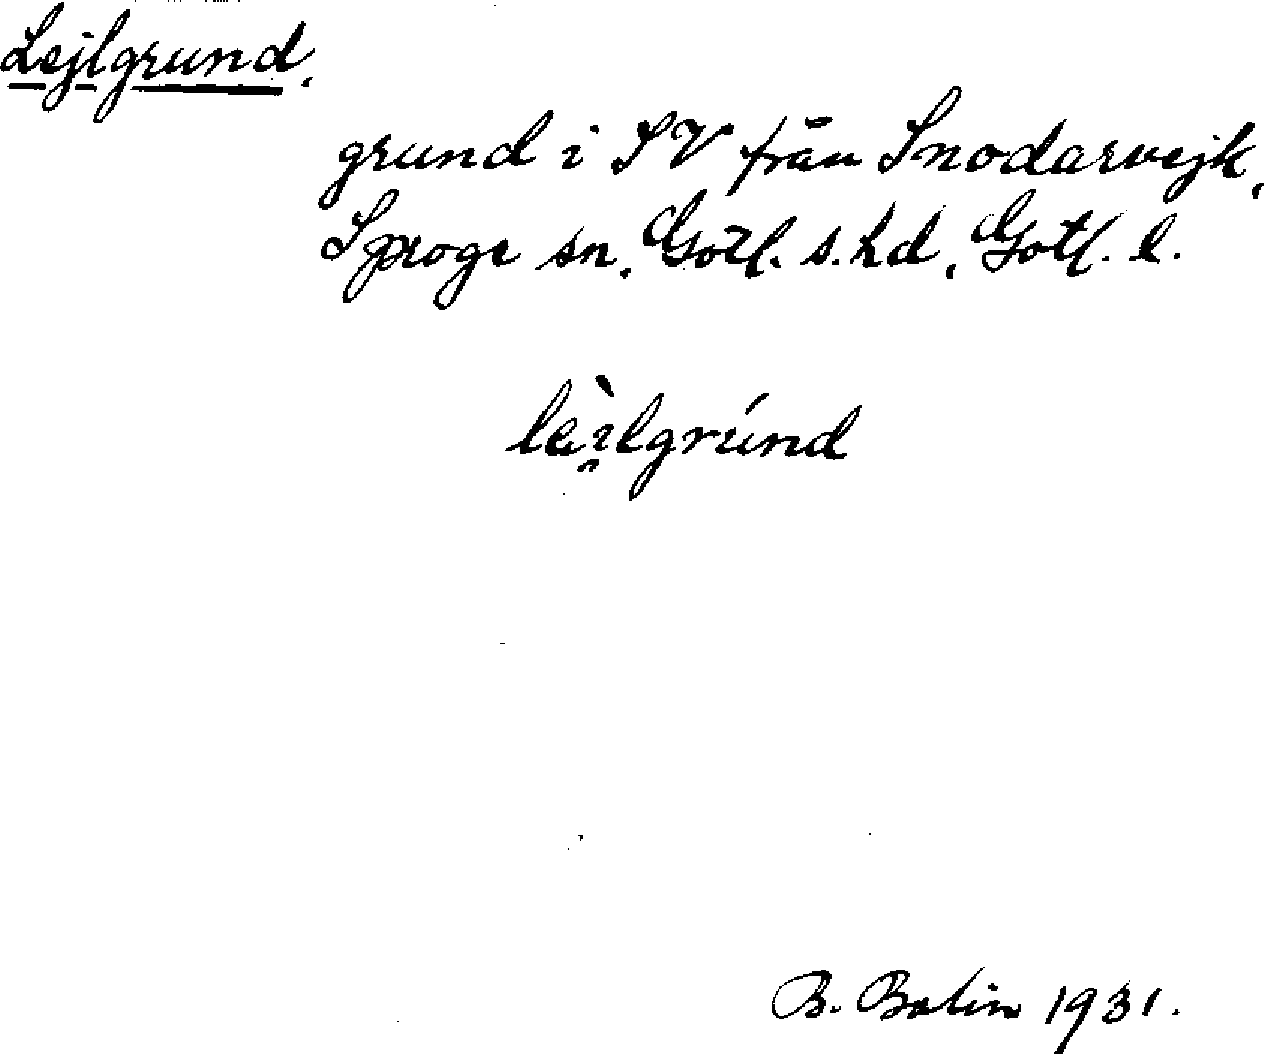 Lejlgrund.
grund i SV från Snodarvejk,
Sproge sn, Gotl. s. hd, Gotl. l.
lèi̯lgrúnd
B. Bolin 1931.